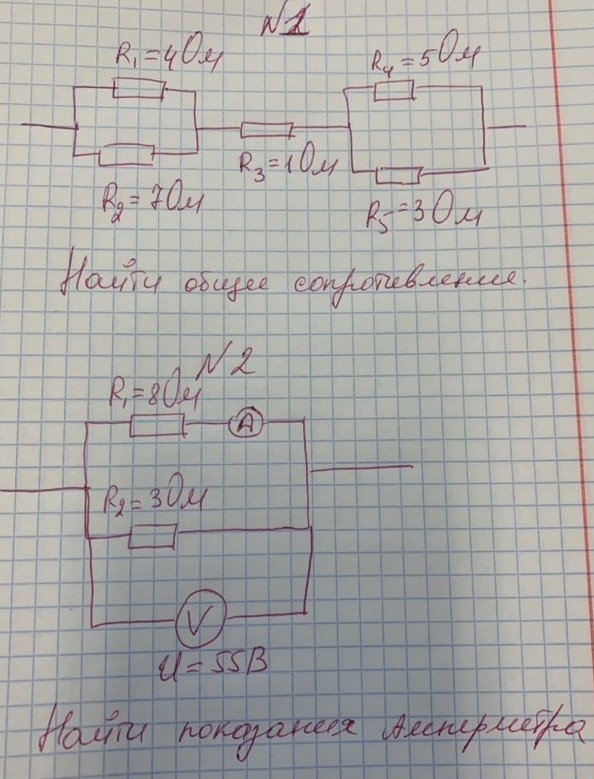 N1
R₁=4Ом
R₄=5Ом
R₃=1Ом
R₂=7Ом
R₅=3Ом
Найти общее сопротивление.
N2
R₁=8Ом
A
R₂=3Ом
V
U=55В
Найти показания Амперметра